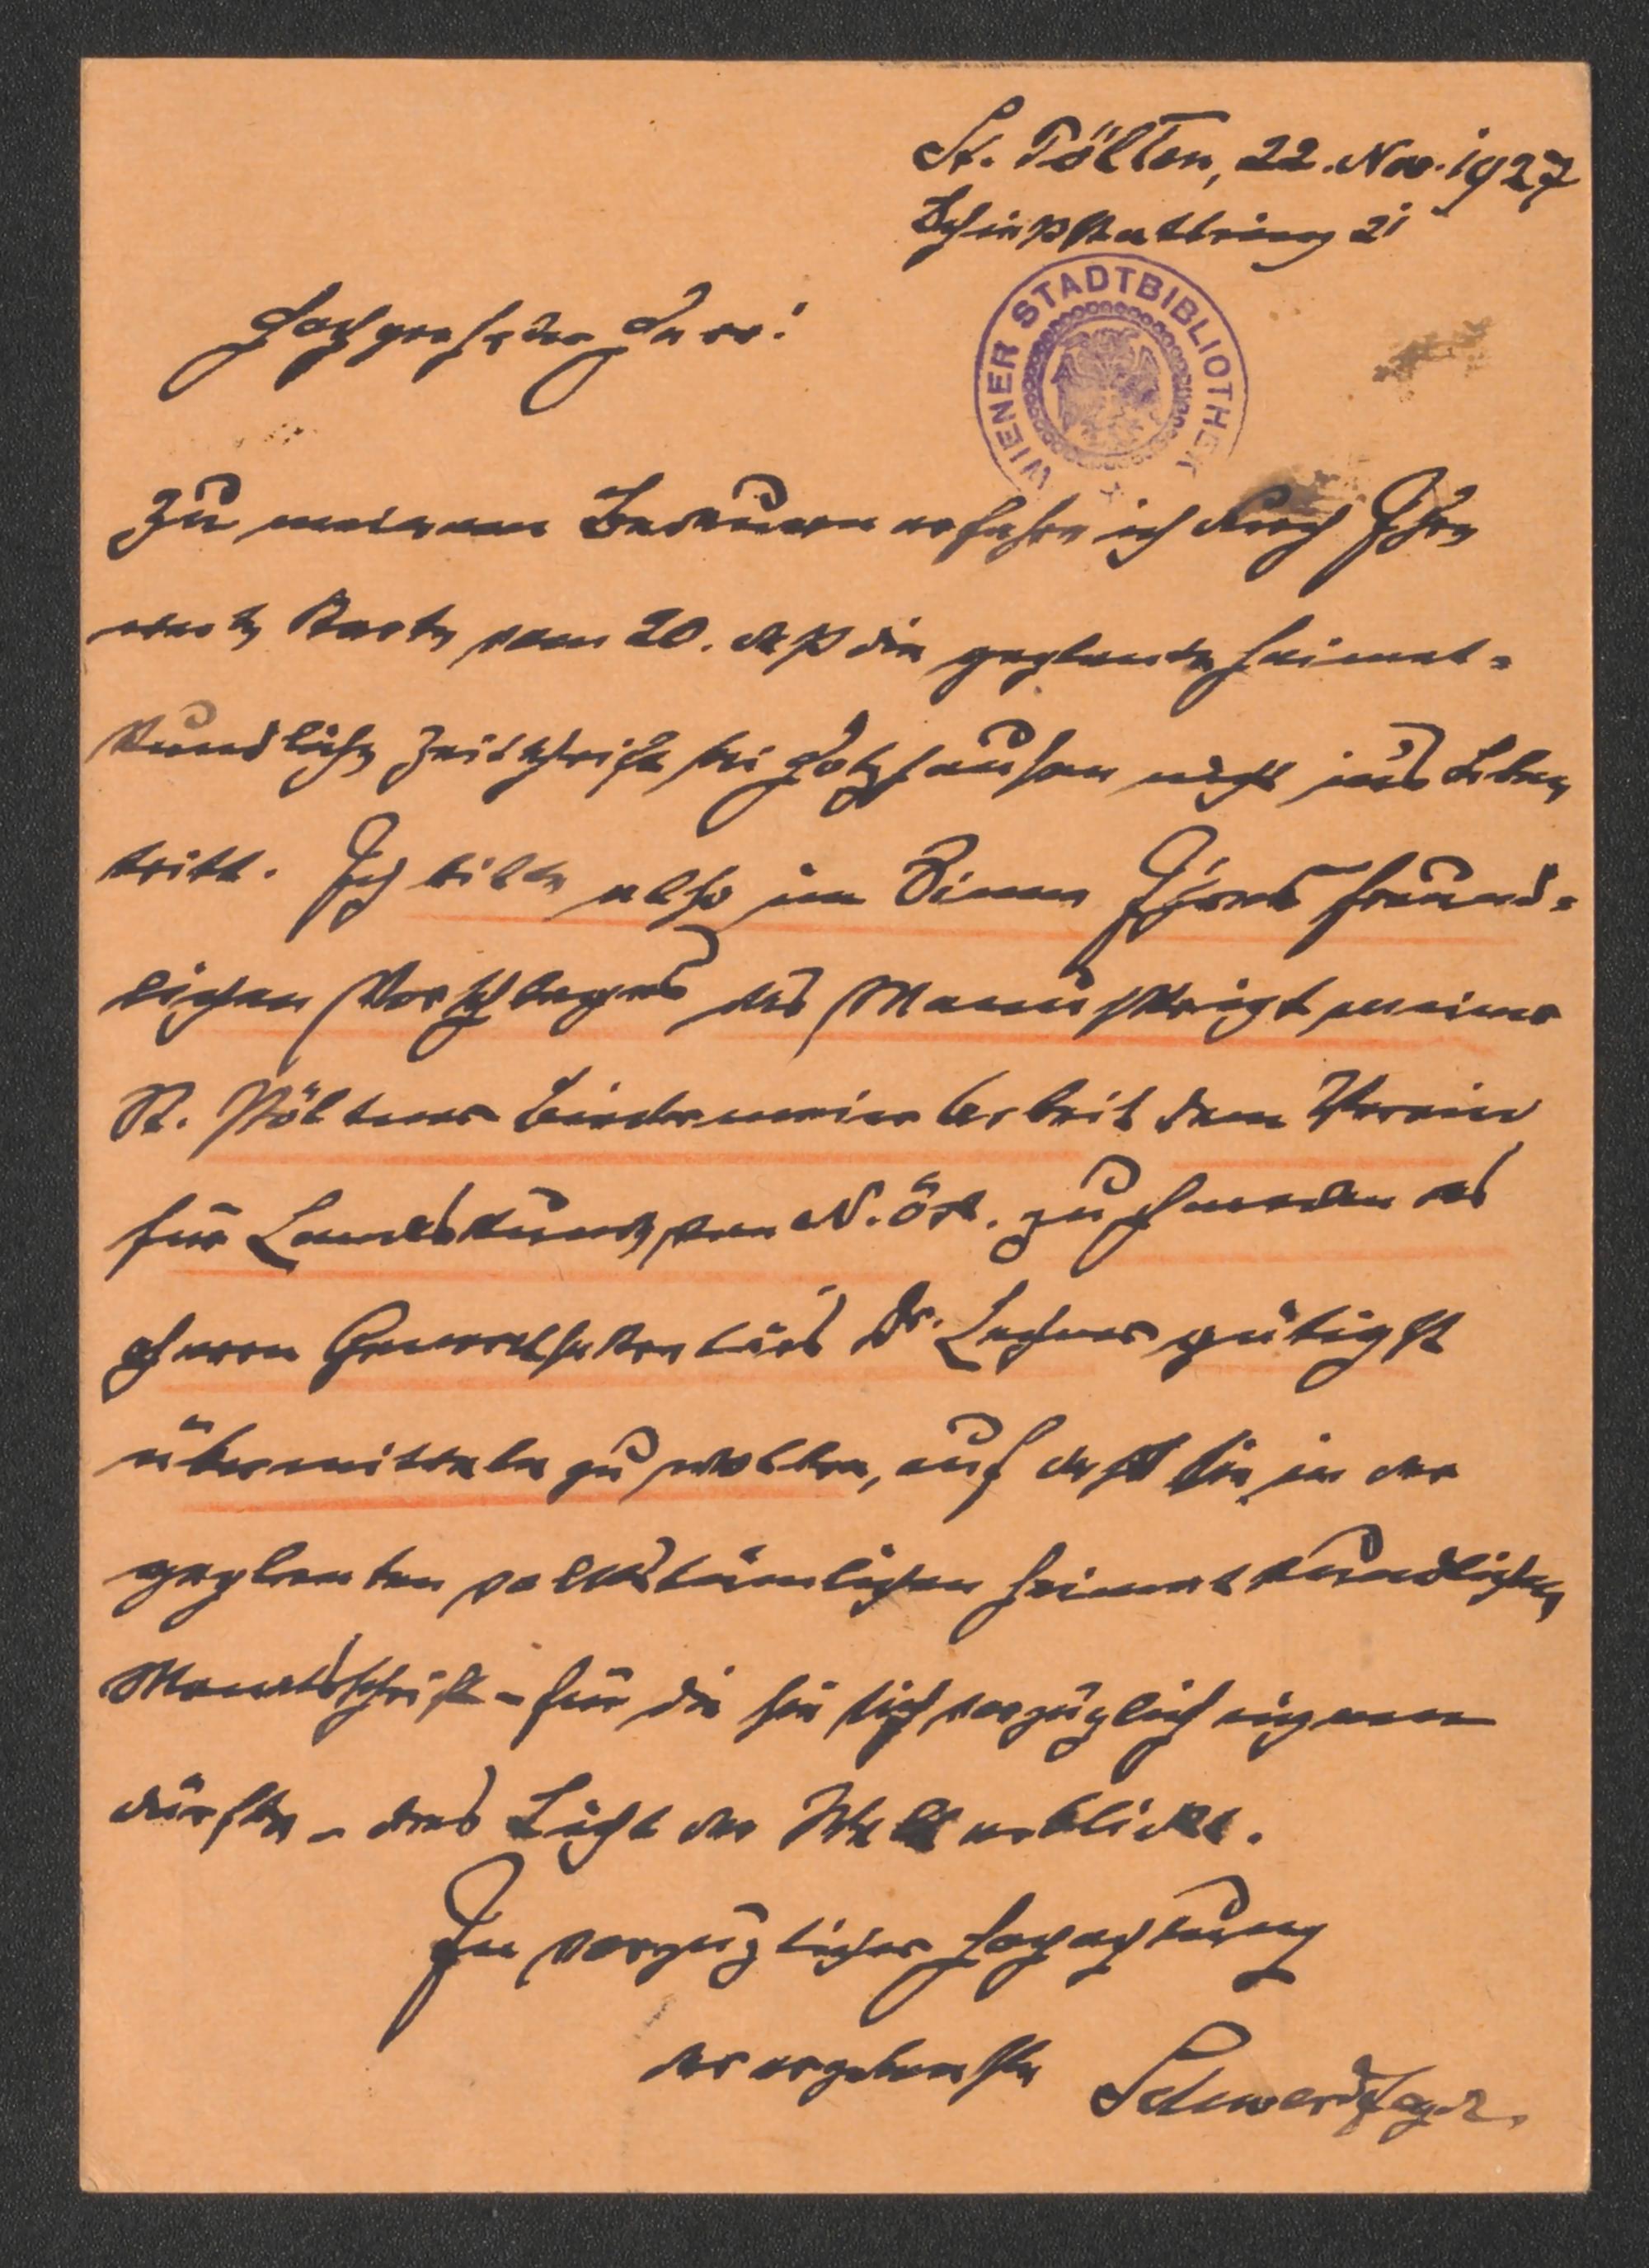 St. Pölten, 22. Nov. 1927
Schießstattring 21
WIENER STADTBIBLIOTHEK
Hochgeehrter Herr!
Zu meinem Bedauern erfahre ich durch Ihre
werte Karte vom 20. daß die geplante heimat-
kundliche Zeitschrift bei Holzhausen nicht ins Leben
tritt. Ich bitte also im Sinne Ihres freund-
lichen Vorschlages das Manuskript meiner
St. Pöltner Biedermeier Arbeit dem Verein
für Landeskunde von N.Öst. zuhanden des
Herrn Generalsekretärs Dr. Lechner gütigst
übermitteln zu wollen, auf daß sie in der
geplanten volkstümlichen heimatkundlichen
Monatsschrift – für die sie sich vorzüglich eignen
dürfte – das Licht der Welt erblickt.
In vorzüglicher Hochachtung
der ergebenste